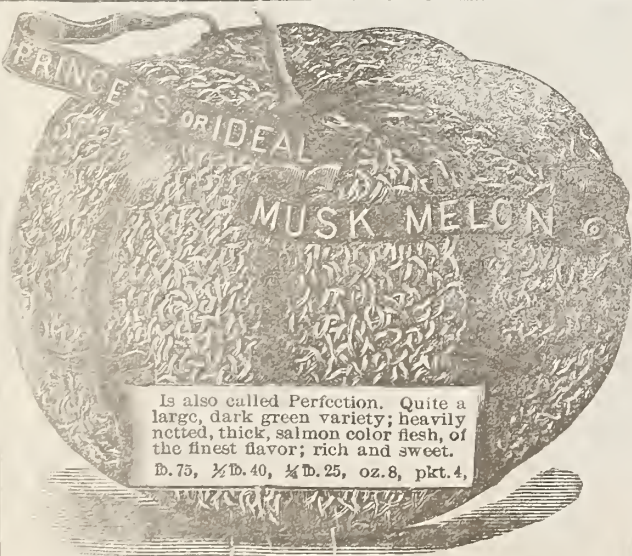 PRINCESS OR IDEAL
MUSK MELON
Is also called Perfection. Quite a
large, dark green variety; heavily
netted, thick, salmon color flesh, of
the finest flavor; rich and sweet.
℔. 75, ½℔. 40, ¼℔. 25, oz. 8, pkt. 4,